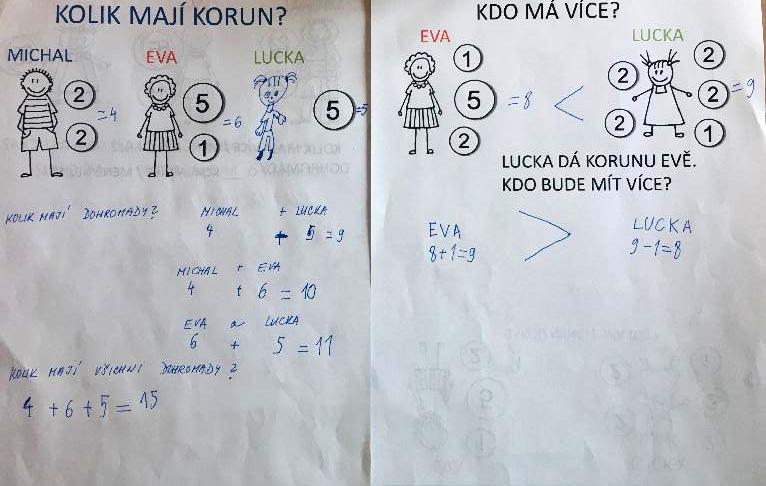 KOLIK MAJÍ KORUN?
MICHAL EVA LUCKA
2 2 =4
5 1 =6
5 =5
KOLIK MAJÍ DOHROMADY? MICHAL + LUCKA
4 + 5 = 9
MICHAL + EVA
4 + 6 = 10
EVA a LUCKA
6 + 5 = 11
KOLIK MAJÍ VŠICHNI DOHROMADY?
4 + 6 + 5 = 15
KDO MÁ VÍCE?
EVA LUCKA
1 5 2 =8 < 2 2 2 2 1 =9
LUCKA DÁ KORUNU EVĚ.
KDO BUDE MÍT VÍCE?
EVA > LUCKA
8+1=9 9-1=8